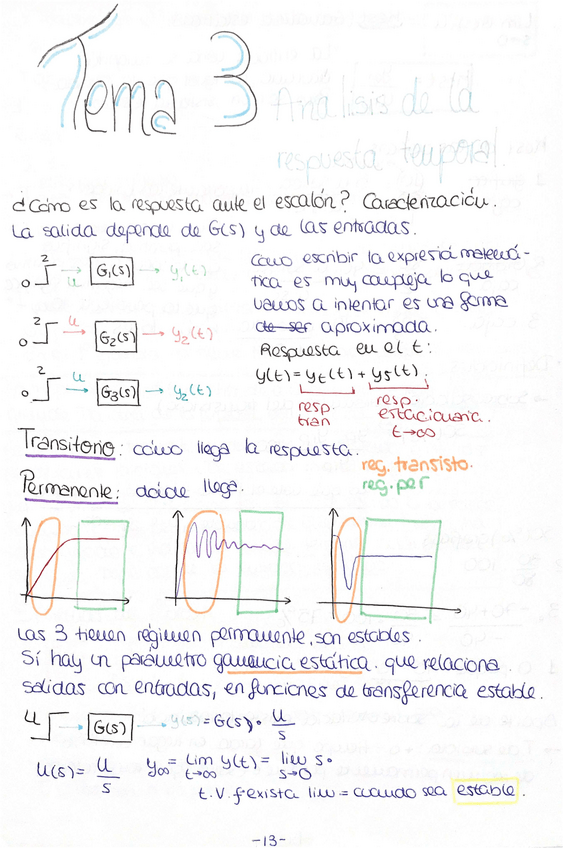 Tema 3
Análisis de la
respuesta temporal.
¿Cómo es la respuesta ante el escalón? Caracterización.
La salida depende de G(s) y de las entradas.
2
0 u G1(s) y1(t)
2
0 u G2(s) y2(t)
2
0 u G3(s) y2(t)
Como escribir la expresió matemá-
tica es muy compleja lo que
vamos a intentar es una forma
de ser aproximada.
Respuesta en el t:
y(t) = yt(t) + ys(t).
resp. tran
resp. estacionaria. t→∞
Transitorio: cómo llega la respuesta.
reg. transisto.
Permanente: dónde llega.
reg. per
Las 3 tienen régimen permanente, son estables.
Sí hay un parámetro ganancia estática. que relaciona
salidas con entradas, en funciones de transferencia estable.
u G(s) y(s) = G(s) · u/s
u(s) = u/s y∞ = lim t→∞ y(t) = lim s→0 s·
t.v.f exista lim = cuando sea estable.
-13-